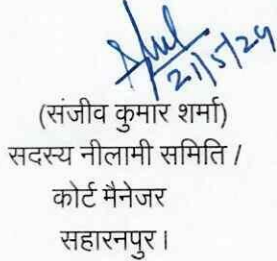 21/5/24
(संजीव कुमार शर्मा)
सदस्य नीलामी समिति /
कोर्ट मैनेजर
सहारनपुर।